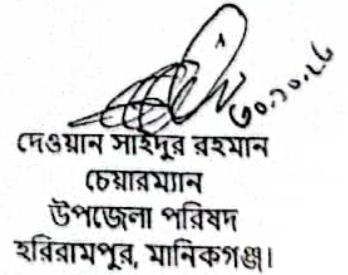 ৩০.১০.২৮
দেওয়ান সাইদুর রহমান
চেয়ারম্যান
উপজেলা পরিষদ
হরিরামপুর, মানিকগঞ্জ।